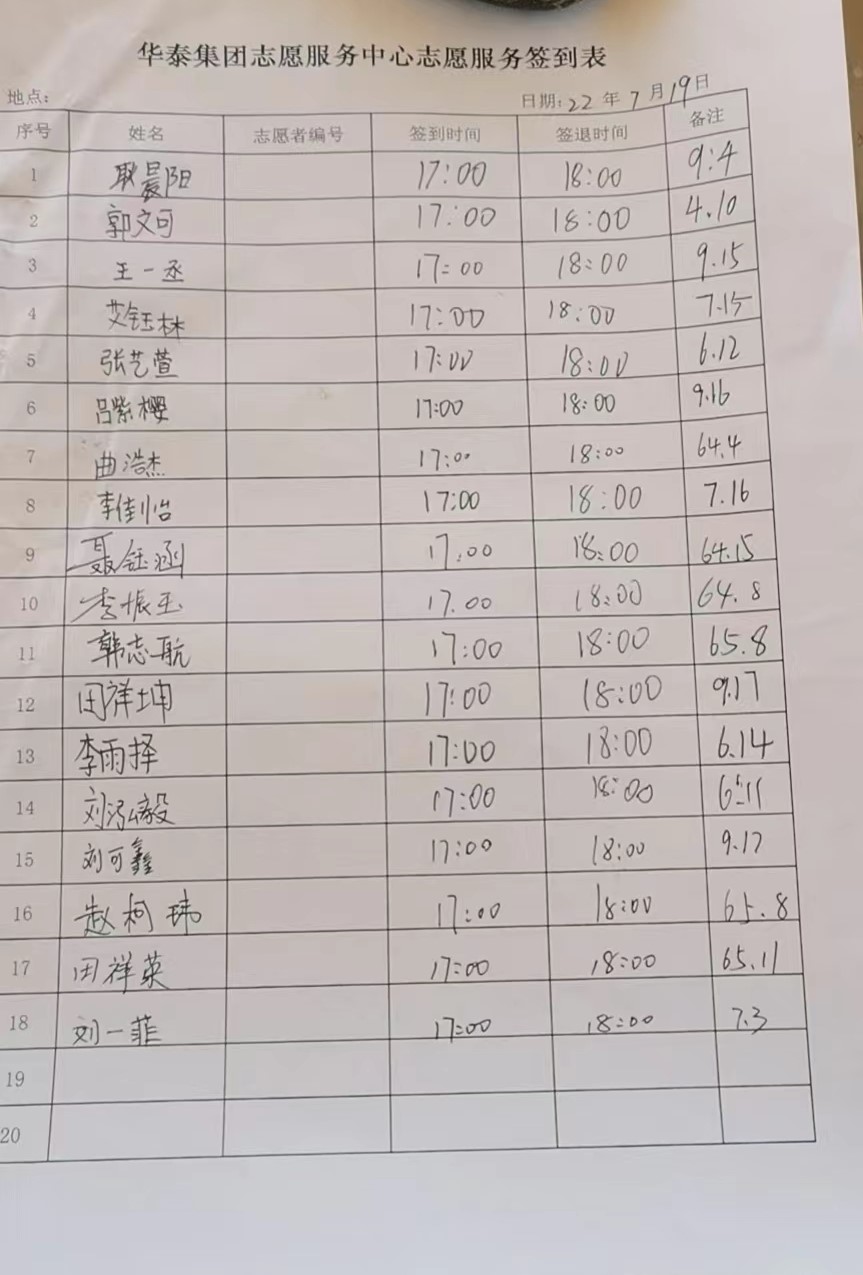 华泰集团志愿服务中心志愿服务签到表
地点: 日期: 22 年 7 月 19 日
序号 姓名 志愿者编号 签到时间 签退时间 备注
1 耿晨阳 17:00 18:00 9:4
2 郭文可 17:00 18:00 4.10
3 王一丞 17:00 18:00 9.15
4 艾钰林 17:00 18:00 7.15
5 张艺萱 17:00 18:00 6.12
6 吕紫樱 17:00 18:00 9.16
7 曲浩杰 17:00 18:00 64.4
8 李佳怡 17:00 18:00 7.16
9 聂钰涵 17.00 18:00 64.15
10 李振玉 17.00 18:00 64.8
11 韩志航 17:00 18:00 65.8
12 田祥坤 17:00 18:00 9.17
13 李雨择 17:00 18:00 6.14
14 刘泓毅 17:00 18:00
15 刘可鑫 17:00 18:00 9.17
16 赵柯玮 17:00 18:00 65.8
17 田祥英 17:00 18:00 65.11
18 刘一菲 17:00 18:00 7.3
19
20